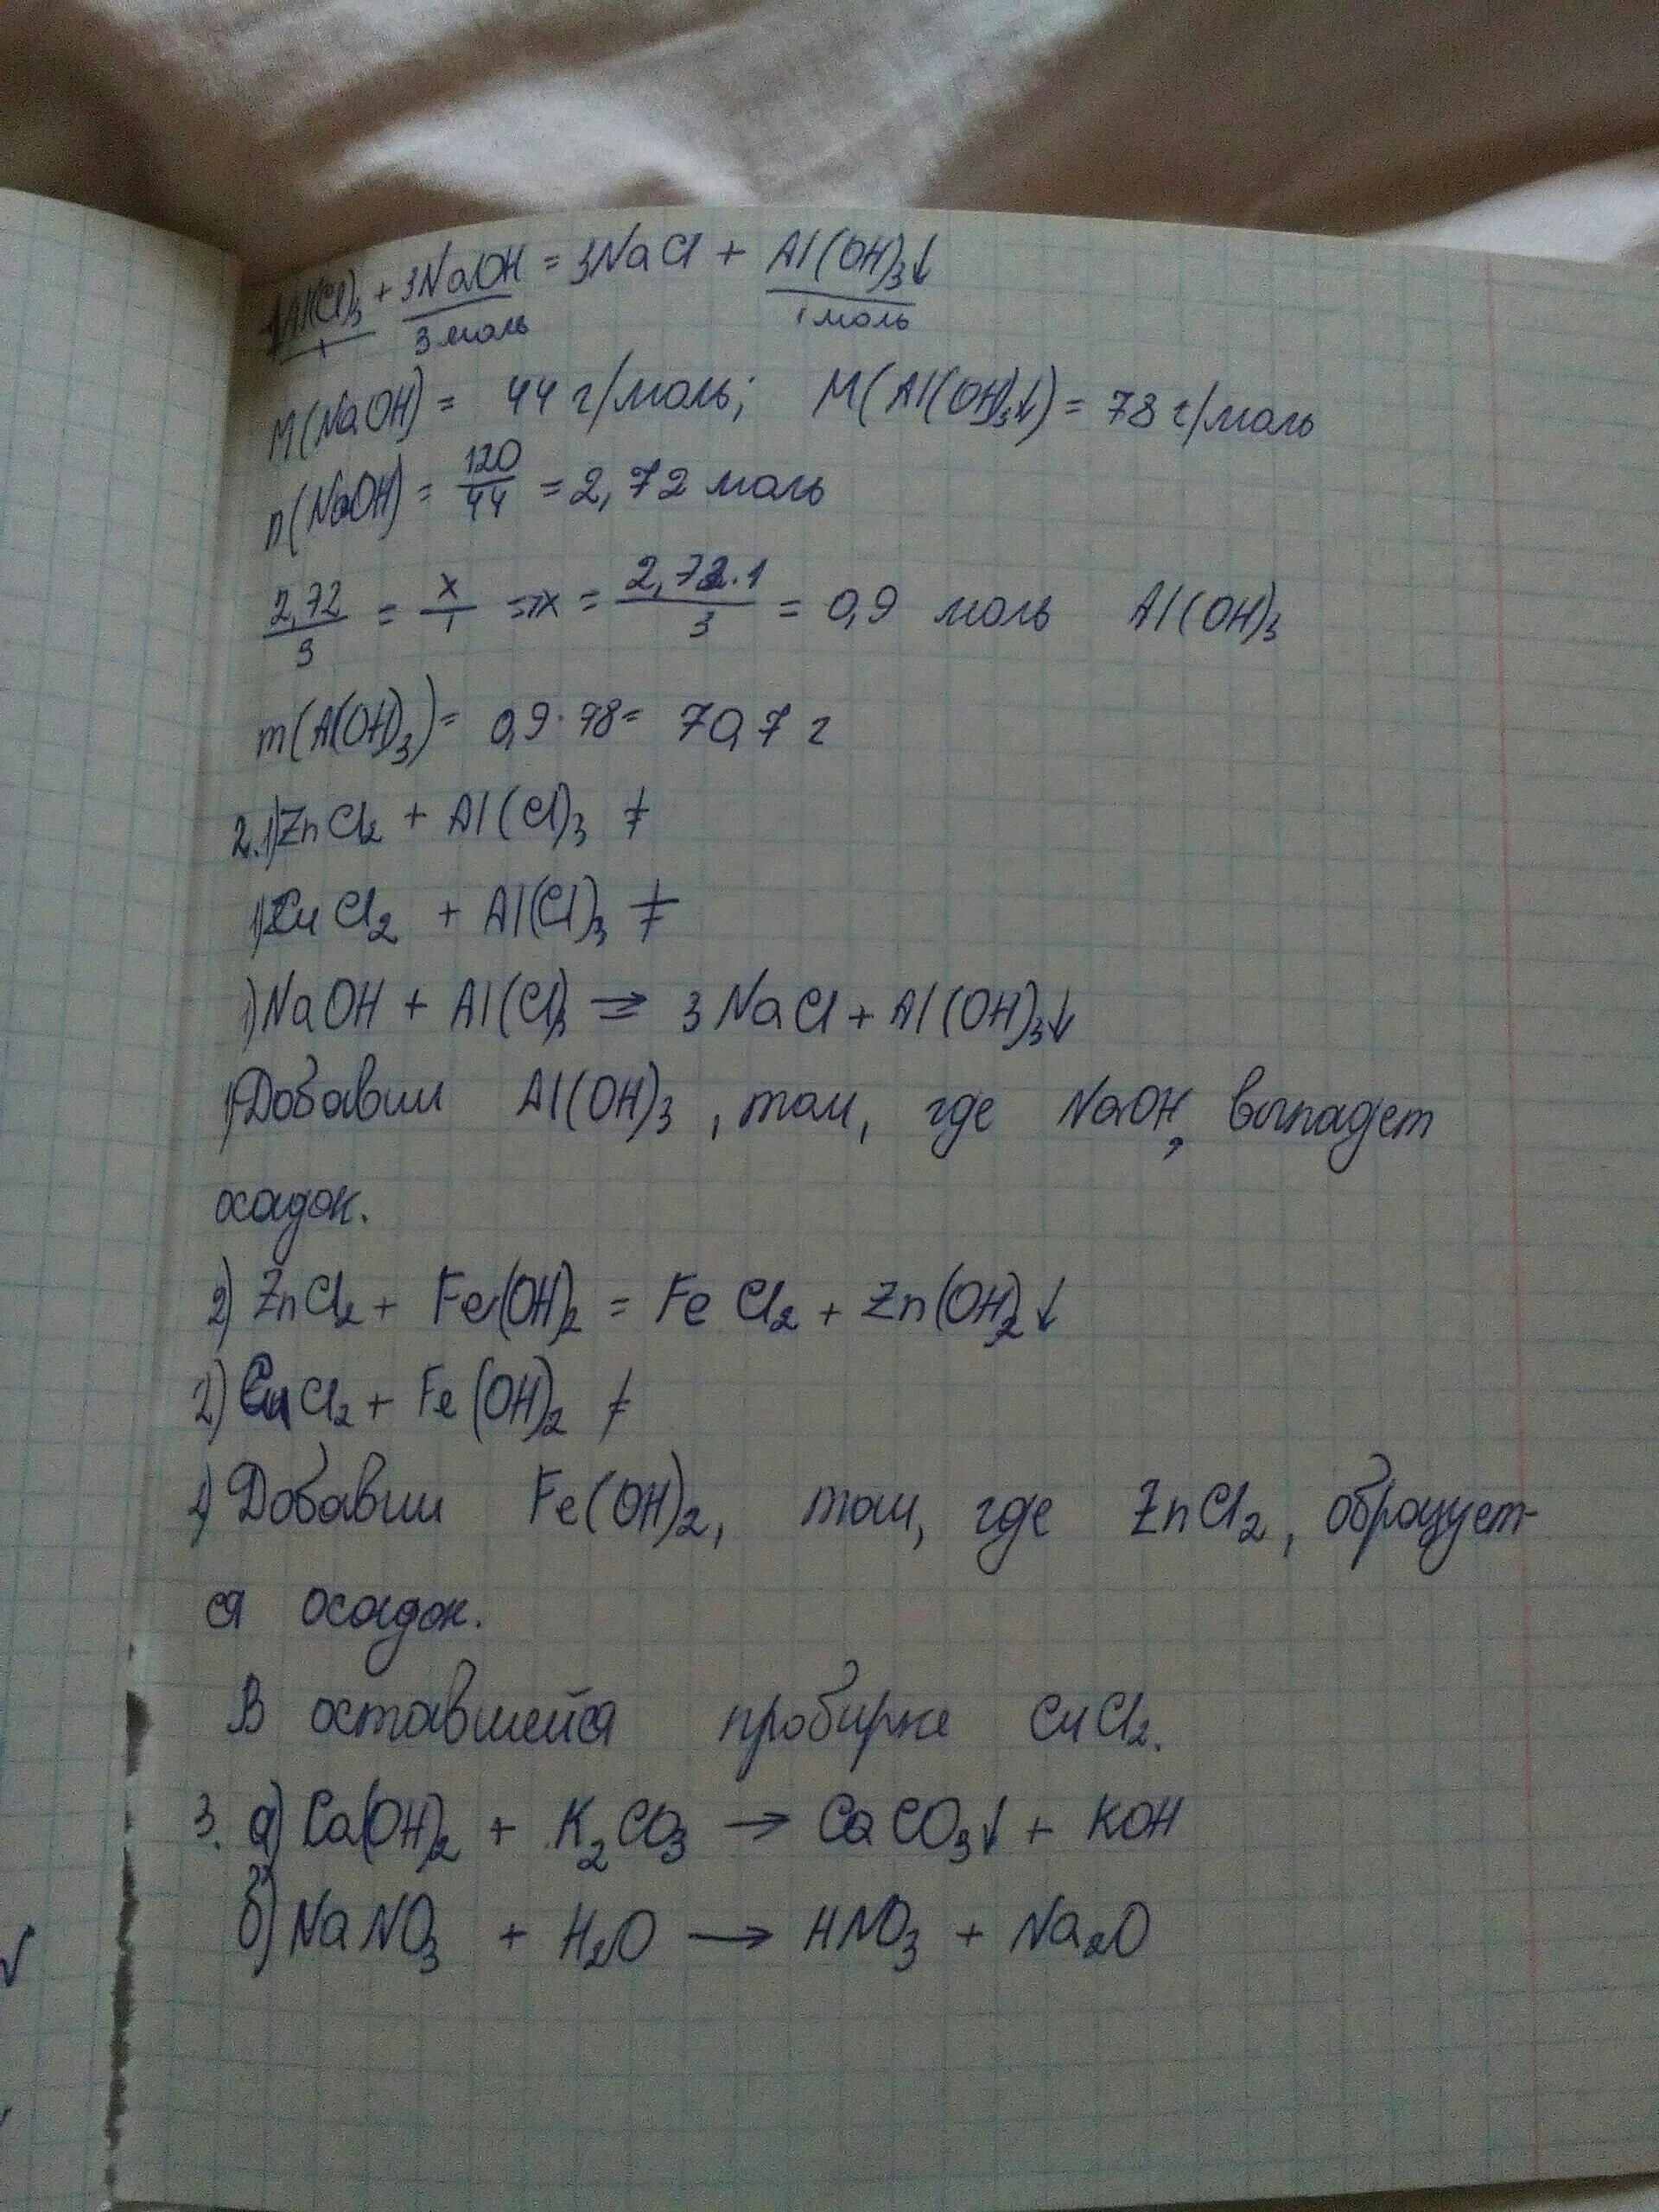 1Al(Cl)₃ + 3NaOH = 3NaCl + Al(OH)₃↓
1 3 моль 1 моль
M(NaOH) = 44 г/моль; M(Al(OH)₃↓) = 78 г/моль
n(NaOH) = 120/44 = 2,72 моль
2,72/3 = x/1 => x = 2,72·1/3 = 0,9 моль Al(OH)₃
m(Al(OH)₃) = 0,9·78 = 70,7 г
2.1) ZnCl₂ + Al(Cl)₃ ≠
1) CuCl₂ + Al(Cl)₃ ≠
1) NaOH + Al(Cl)₃ => 3NaCl + Al(OH)₃↓
1) Добавим Al(OH)₃, там, где NaOH, выпадет
осадок.
2) ZnCl₂ + Fe(OH)₂ = FeCl₂ + Zn(OH)₂↓
2) CuCl₂ + Fe(OH)₂ ≠
2) Добавим Fe(OH)₂, там, где ZnCl₂, образует-
ся осадок.
В оставшейся пробирке CuCl₂.
3. а) Ca(OH)₂ + K₂CO₃ → CaCO₃↓ + KOH
б) NaNO₃ + H₂O → HNO₃ + Na₂O